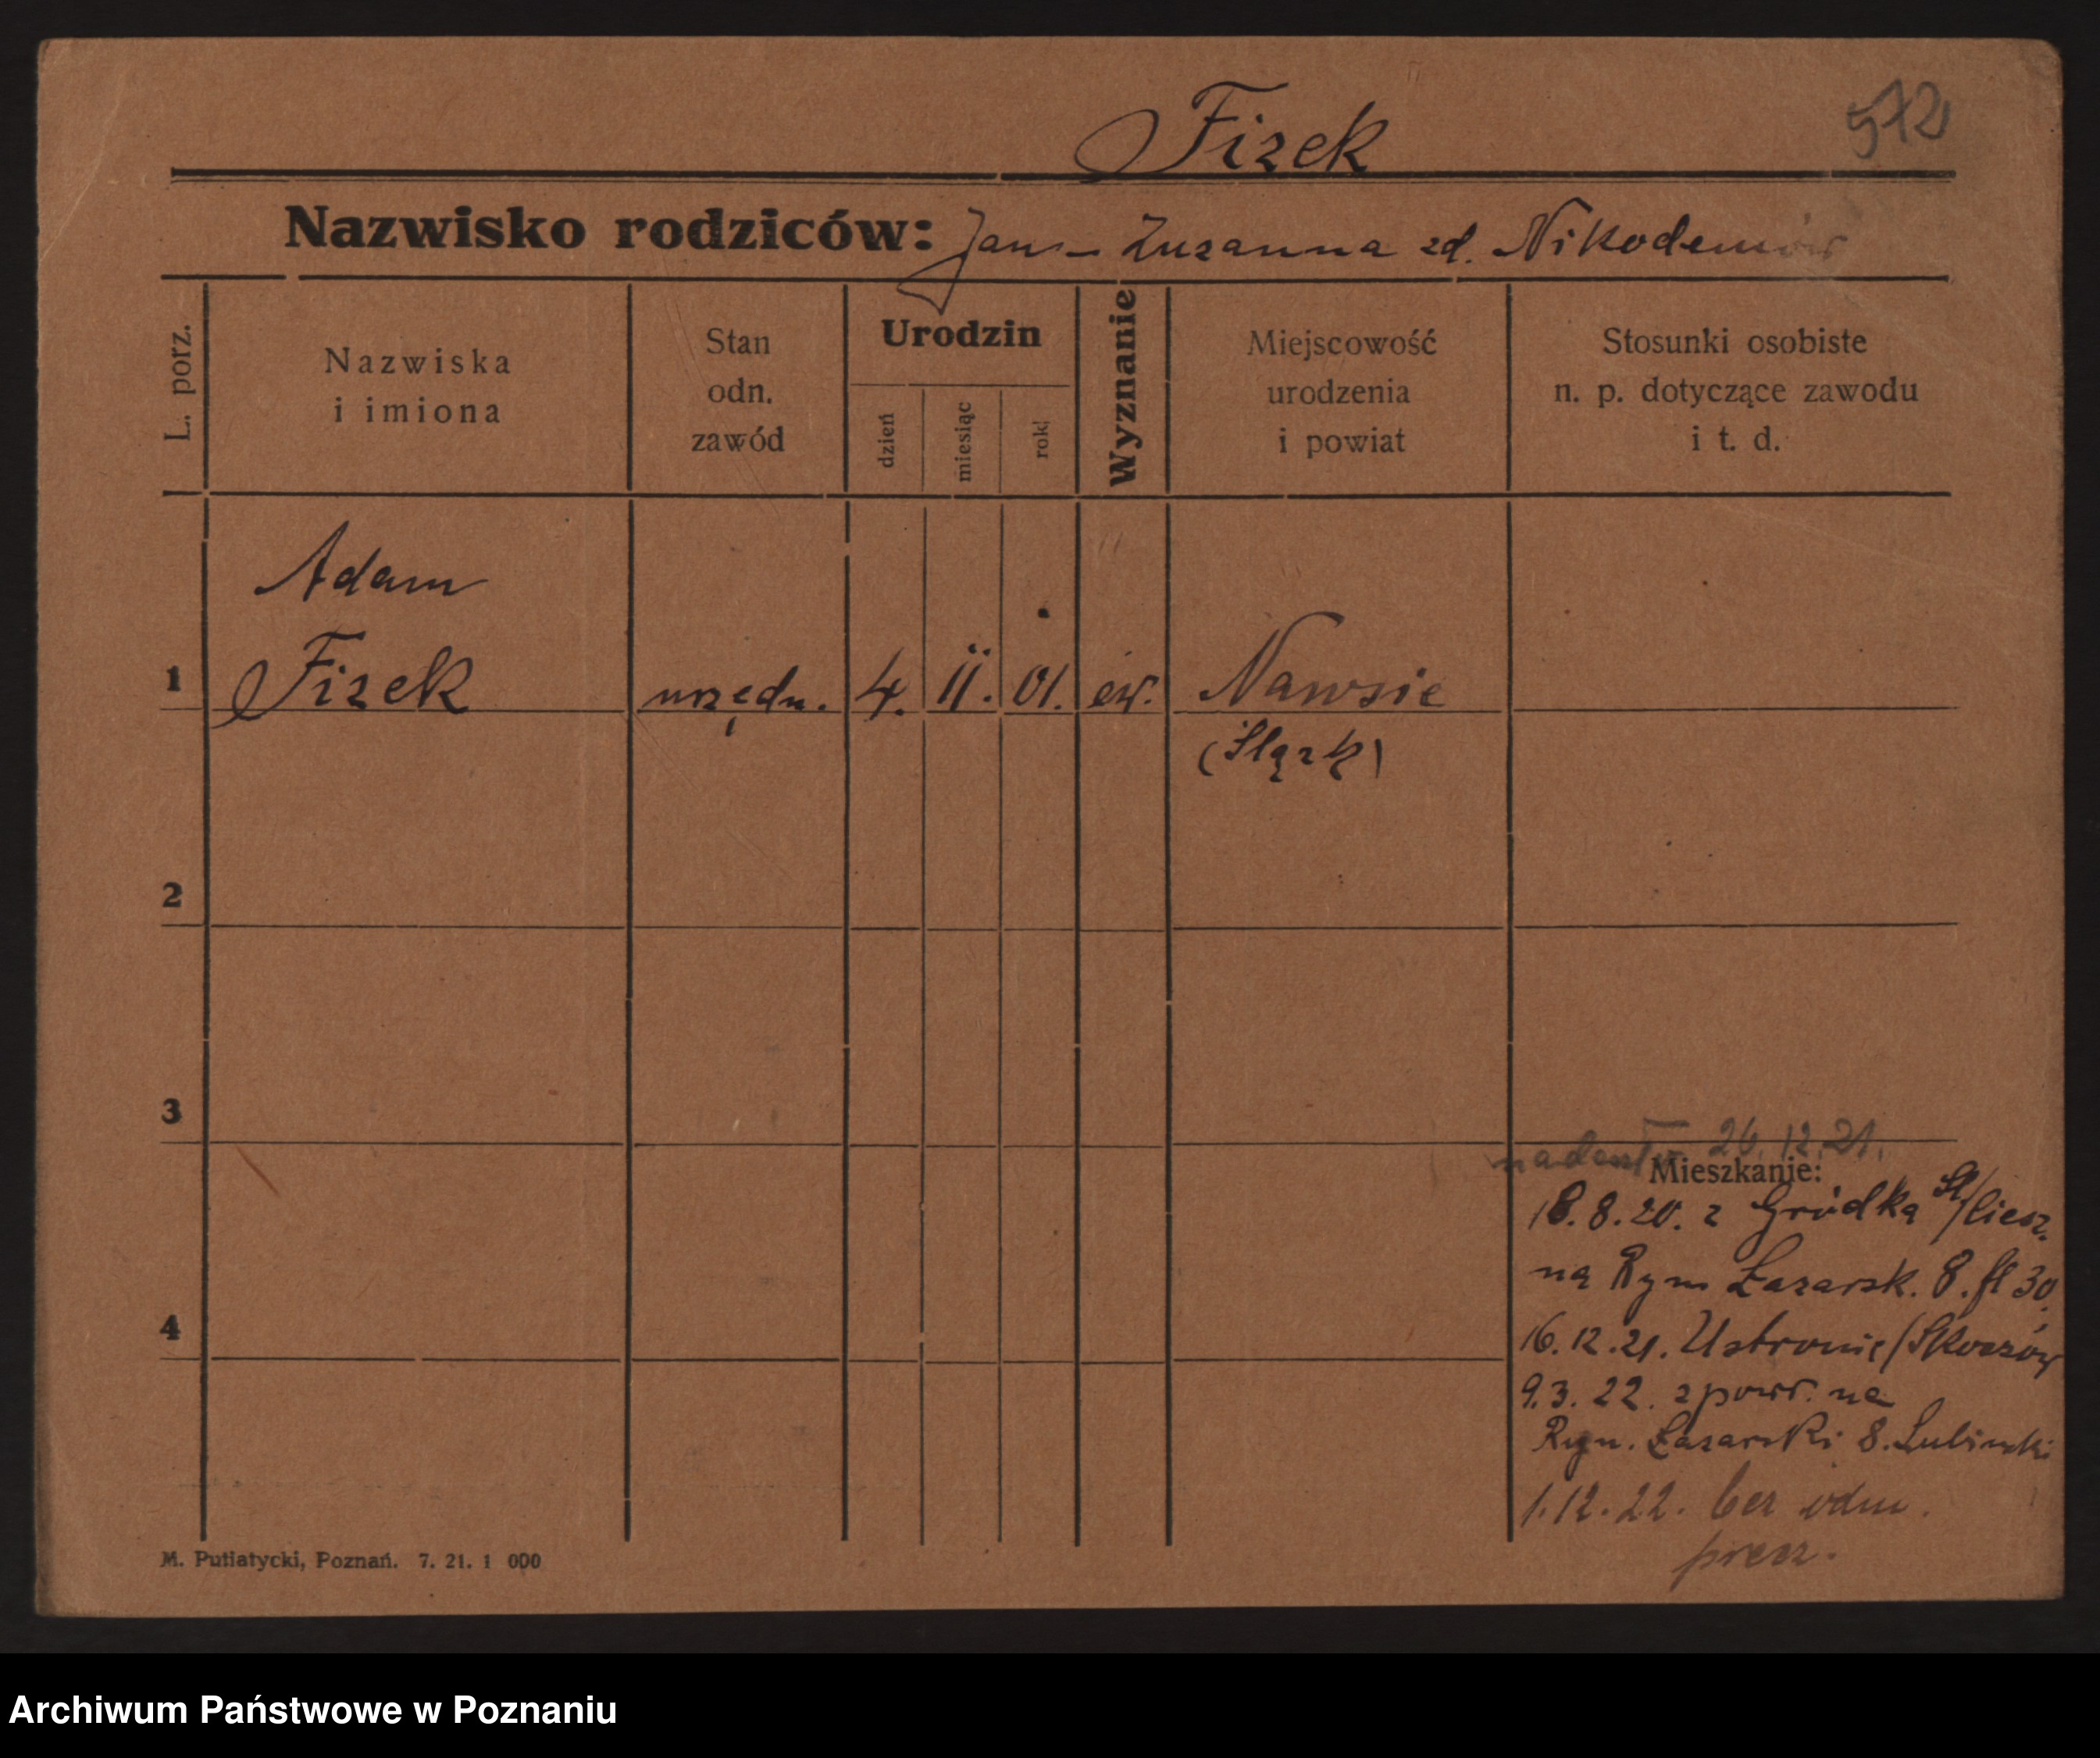 572
Fizek
Nazwisko rodziców: Jan – Zuzanna zd. Nikodemów
L. porz.
Nazwiska
i imiona
Stan
odn.
zawód
Urodzin
dzień
miesiąc
rok
Wyznanie
Miejscowość
urodzenia
i powiat
Stosunki osobiste
n. p. dotyczące zawodu
i t. d.
Adam
1 Fizek urzędn. 4. II. 01. ew. Nawsie
(Śląsk)
2
3
26.12.21.
Mieszkanie:
18.8.20. z Gródka Śl/Ciesz.
na Ryn Łazarsk. 8. 30.
16.12.21. Ustronie/Skoczów
4
9.3.22. z powr. na
Ryn. Łazarski 8.
1.12.22. bez odm.
precz.
M. Putiatycki, Poznań. 7. 21. 1 000
Archiwum Państwowe w Poznaniu